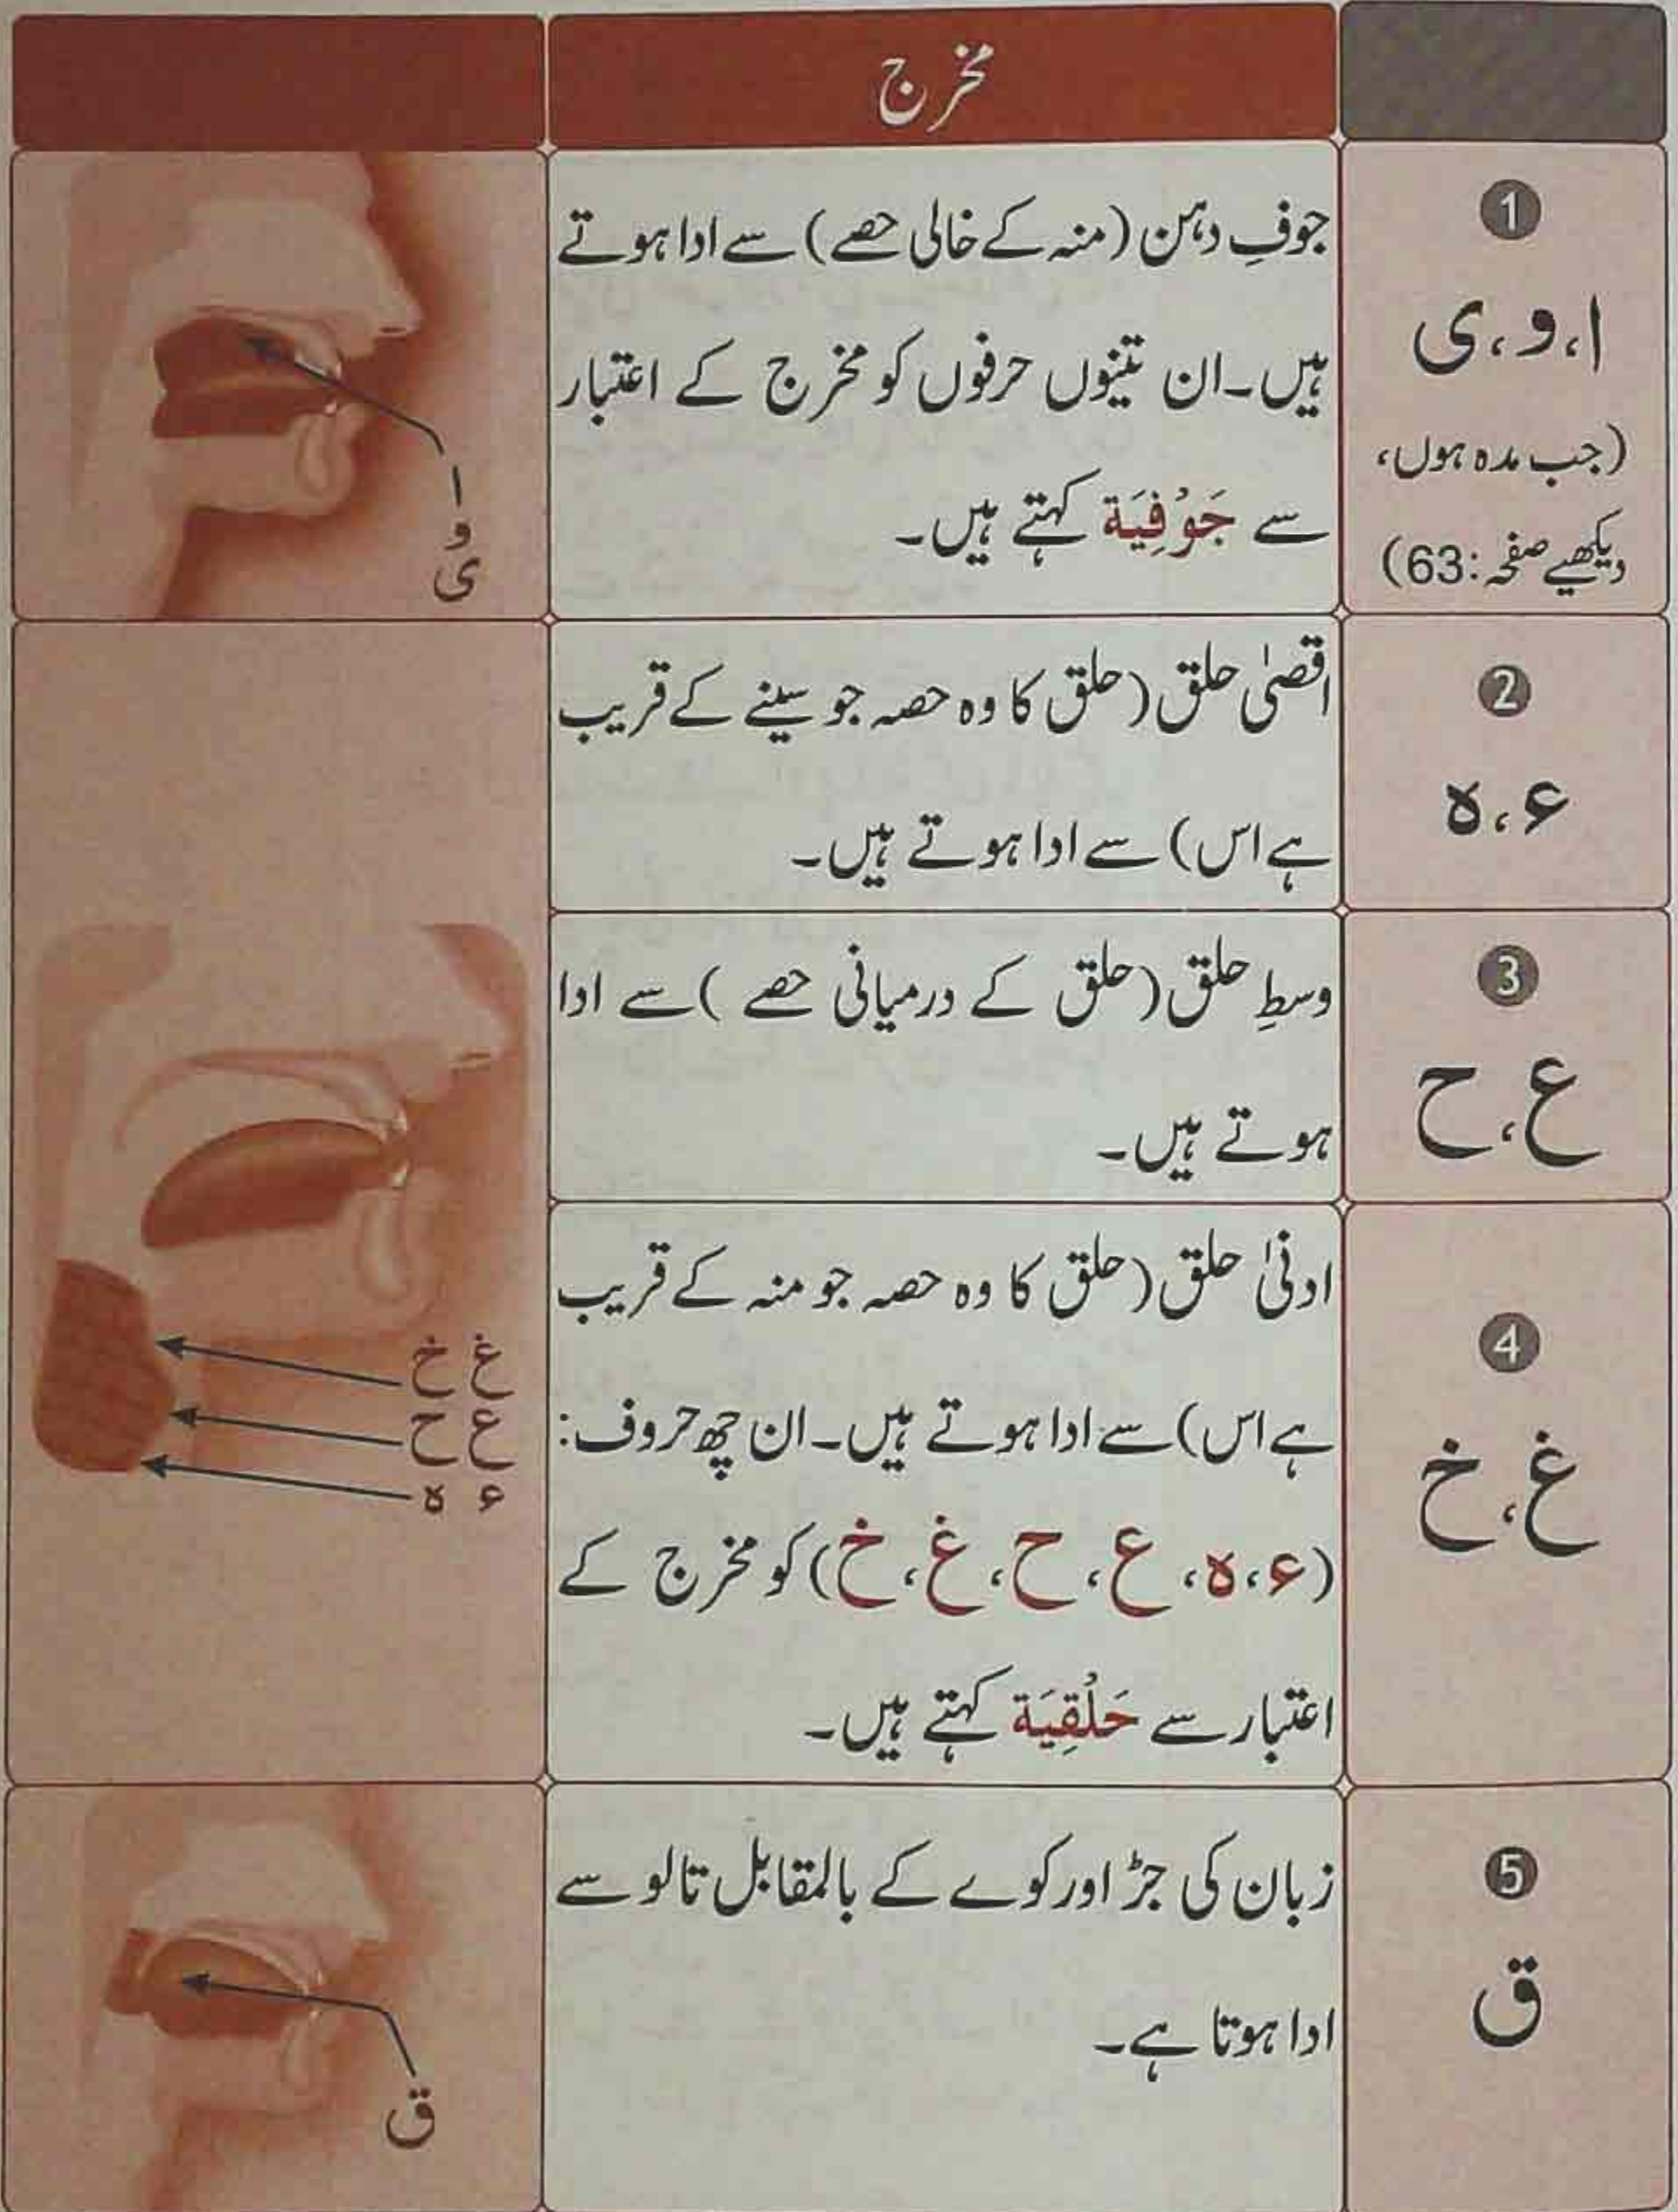 مخرج
1
ا، و، ی
(جب مدہ ہوں،
دیکھیے صفحہ:63)
جوفِ دہن (منہ کے خالی حصے) سے ادا ہوتے
ہیں۔ ان تینوں حرفوں کو مخرج کے اعتبار
سے جَوْفِيَة کہتے ہیں۔
ا
و
ی
2
ء، ہ
اقصیٰ حلق (حلق کا وہ حصہ جو سینے کے قریب
ہے اس) سے ادا ہوتے ہیں۔
3
ع، ح
وسطِ حلق (حلق کے درمیانی حصے) سے ادا
ہوتے ہیں۔
4
غ، خ
ادنیٰ حلق (حلق کا وہ حصہ جو منہ کے قریب
ہے اس) سے ادا ہوتے ہیں۔ ان چھ حروف:
(ء، ہ، ع، ح، غ، خ) کو مخرج کے
اعتبار سے حَلْقِيَة کہتے ہیں۔
غ خ
ع ح
ء ہ
5
ق
زبان کی جڑ اور کوے کے بالمقابل تالو سے
ادا ہوتا ہے۔
ق